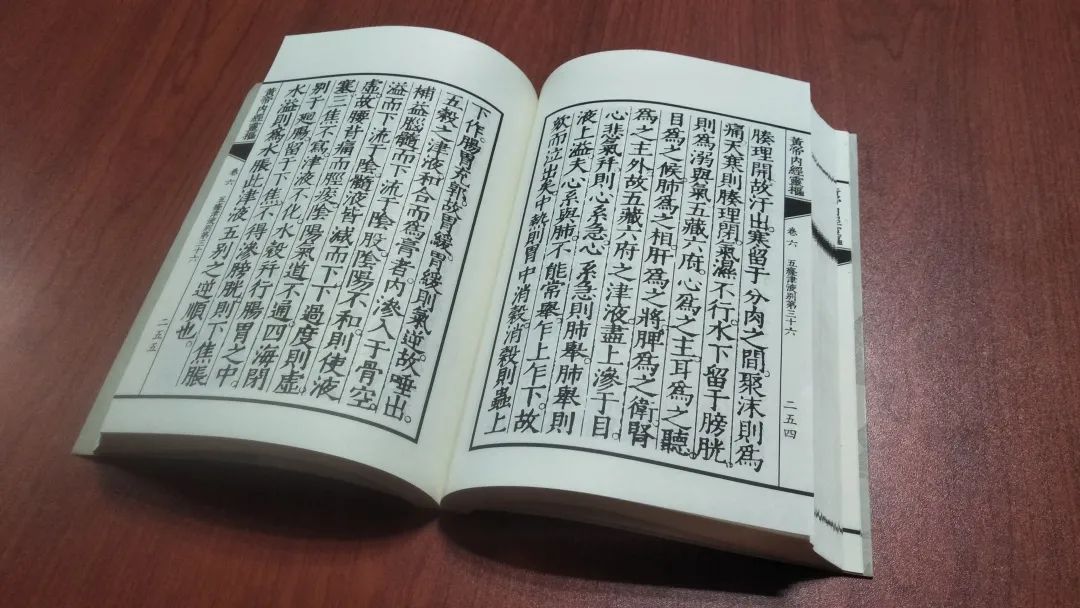 黃帝內經靈樞
卷六
五癃津液別第三十六
二五四
腠理開故汗出。寒留于分肉之間。聚沫則爲
痛天寒則腠理閉。氣濕不行。水下留于膀胱。
則爲溺與氣。五藏六府。心爲之主。耳爲之聽。
目爲之候肺爲之相。肝爲之將脾爲之衛。腎
爲之主外。故五藏六府之津液盡上滲于目。
心悲氣幷則心系急。心系急則肺舉。肺舉則
液上溢夫心系與肺不能常舉乍上乍下。故
欬而泣出矣中熱則胃中消穀。消穀則蟲上
下作。腸胃充郭。故胃緩。胃緩則氣逆。故唾出。
五穀之津液和合而爲膏者。內滲入于骨空。
補益腦髓而下流于陰股。陰陽不和。則使液
溢而下流于陰。髓液皆減而下。下過度則虛。
虛。故腰背痛而脛痠。陰陽氣道不通。四海閉
塞三焦不寫。津液不化。水穀幷行腸胃之中。
別于廻腸留于下焦。不得滲膀胱。則下焦脹
水溢則爲水脹。此津液五別之逆順也。
黃帝內經靈樞
卷六
五癃津液別第三十六
二五五